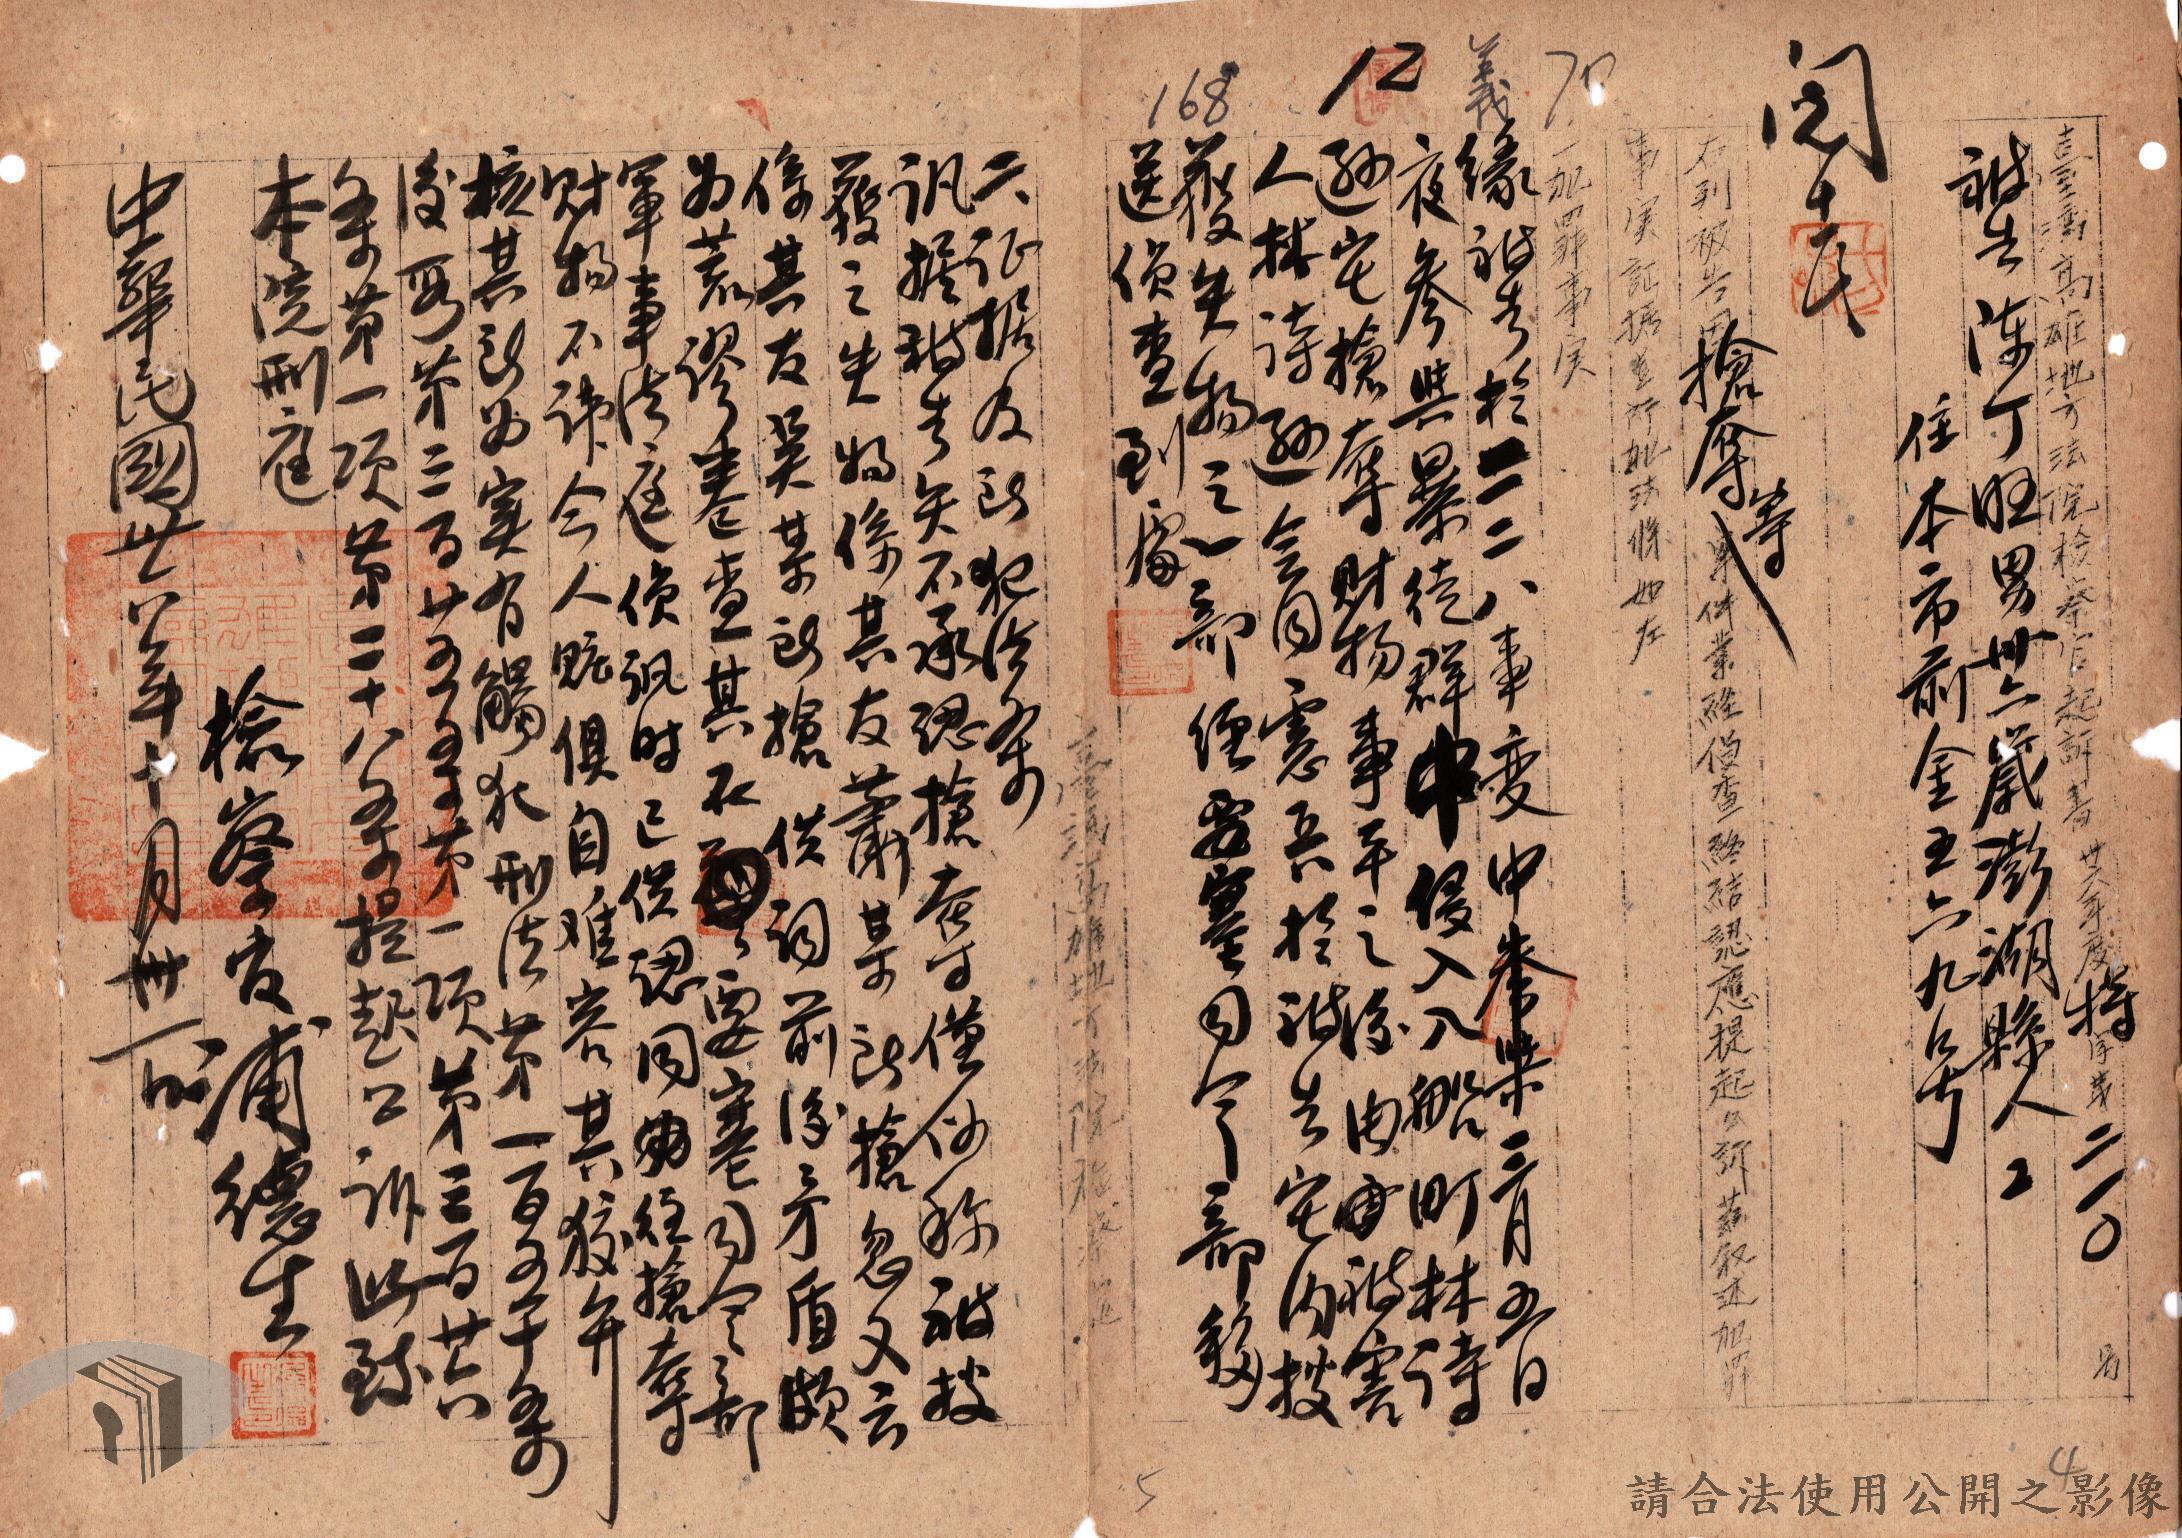 臺灣高雄地方法院檢察官起訴書 卅六年度特字第二一〇號
被告 陳丁旺 男 卅六歲 澎湖縣人 工
住本市前金五六九号
閱
右列被告因搶奪等案件業經偵查終結認應提起公訴茲敘述犯罪
事实証据並所犯法條如左
一犯罪事实
緣被告於二二八事变中卅六年三月五日
夜參與暴徒群中侵入入船町林詩
遜宅搶奪財物事平之後由被害
人林詩遜会同憲兵於被告宅內搜
獲失物之一部經要塞司令部移
送偵查到處
二証據及所犯法条
訊據被告矢不承認搶奪僅称被搜
獲之失物係其友蕭某所搶忽又云
係其友吳某所搶供詞前後矛盾頗
為荒謬卷查其在要塞司令部
軍事法庭偵訊時已供認同夥往搶奪
財物不諱今人贓俱自难容其狡弁
核其所為实有觸犯刑法第一百五十条
後段第三百廿五条第一項第三百廿六
条第一項第二十八条提起公訴此致
本院刑庭
檢察官
中華民國卅六年十月卅一日
臺灣高雄地方法院檢察處
義
12
168
70
4
5
請合法使用公開之影像